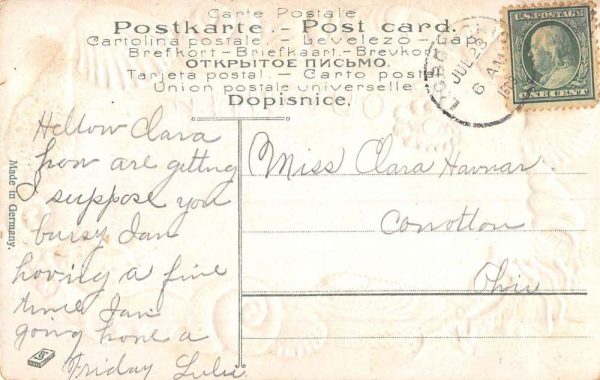 Carte Postale
Postkarte - Post card.
Cartolina postale. - Levelező-Lap.
Brefkort - Briefkaart - Brevkort
ОТКРЫТОЕ ПИСЬМО.
Tarjeta postal. - Carto postal
Union postale universelle.
Dopisnice.
JUL 23
6 AM
U.S. POSTAGE
ONE CENT
Hellow Clara
how are getting
I suppose you
bursy I am
having a fine
time I am
gong home a
Friday Lulu
Miss Clara Havnar.
Conotton
Ohio
Made in Germany.